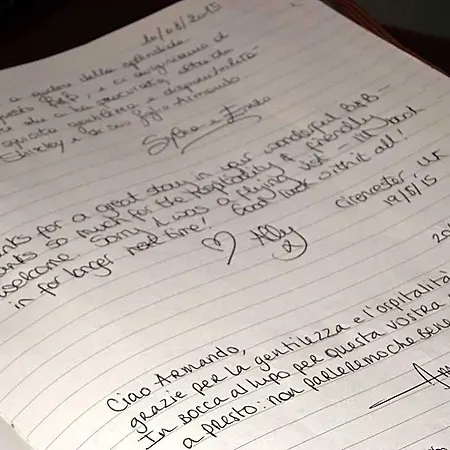 10/08/2015
a godere dello splendido
questo B&B, e ci
che ci ha
squisita gentilezza e disponibilità
Shirley e di suo figlio Armando.
Thanks for a great stay in your wonderful B&B –
thanks so much for the hospitality & friendly
welcome. Sorry it was a flying visit – I'll book
in for longer next time! Good luck with it all!
♡ Ally x
Cirencester, UK
19/8/15
Ciao Armando,
grazie per la gentilezza e l'ospitalità
In bocca al lupo per questa vostra
a presto: non parleremo che bene